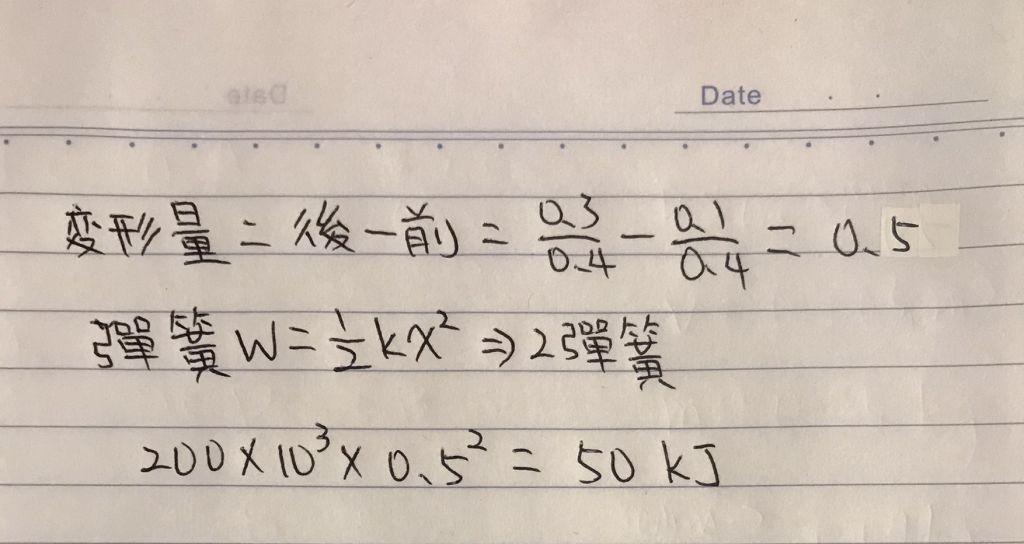 Date
変形量 = 後 - 前 = 0.3/0.4 - 0.1/0.4 = 0.5
彈簧 W = 1/2 kx² ⇒ 2彈簧
200 × 10³ × 0.5² = 50 kJ